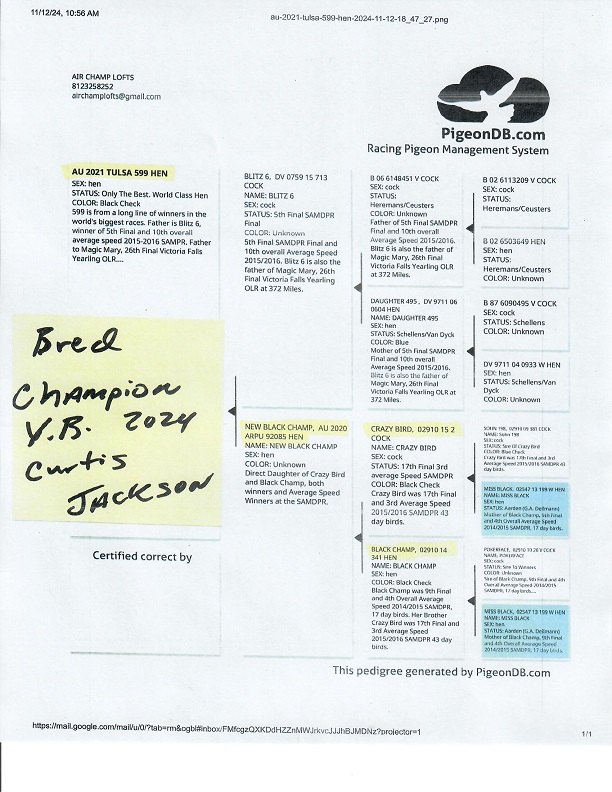 11/12/24, 10:56 AM
au-2021-tulsa-599-hen-2024-11-12-18_47_27.png
AIR CHAMP LOFTS
8123258252
airchamplofts@gmail.com
PigeonDB.com
Racing Pigeon Management System
AU 2021 TULSA 599 HEN
SEX: hen
STATUS: Only The Best. World Class Hen
COLOR: Black Check
599 is from a long line of winners in the
world's biggest races. Father is Blitz 6,
winner of 5th Final and 10th overall
average speed 2015-2016 SAMPR. Father
to Magic Mary, 26th Final Victoria Falls
Yearling OLR....
Bred
Champion
Y.B. 2024
Curtis
Jackson
Certified correct by
BLITZ 6, DV 0759 15 713
COCK
NAME: BLITZ 6
SEX: cock
STATUS: 5th Final SAMDPR
Final
COLOR: Unknown
5th Final SAMDPR Final and
10th overall Average Speed
2015/2016. Blitz 6 is also the
father of Magic Mary, 26th
Final Victoria Falls Yearling
OLR at 372 Miles.
NEW BLACK CHAMP, AU 2020
ARPU 92085 HEN
NAME: NEW BLACK CHAMP
SEX: hen
COLOR: Unknown
Direct Daughter of Crazy Bird
and Black Champ, both
winners and Average Speed
Winners at the SAMDPR.
B 06 6148451 V COCK
SEX: cock
STATUS:
Heremans/Ceusters
COLOR: Unknown
Father of 5th Final SAMDPR
Final and 10th overall
Average Speed 2015/2016.
Blitz 6 is also the father of
Magic Mary, 26th Final
Victoria Falls Yearling OLR
at 372 Miles.
DAUGHTER 495 , DV 9711 06
0604 HEN
NAME: DAUGHTER 495
SEX: hen
STATUS: Schellens/Van Dyck
COLOR: Blue
Mother of 5th Final SAMPR
Final and 10th overall
Average Speed 2015/2016.
Blitz 6 is also the father of
Magic Mary, 26th Final
Victoria Falls Yearling OLR
at 372 Miles.
CRAZY BIRD, 02910 15 2
COCK
NAME: CRAZY BIRD
SEX: cock
STATUS: 17th Final 3rd
average speed SAMDPR
COLOR: Black Check
Crazy Bird was 17th Final
and 3rd Average Speed
2015/2016 SAMDPR 43
day birds.
BLACK CHAMP, 02910 14
341 HEN
NAME: BLACK CHAMP
SEX: hen
COLOR: Black Check
Black Champ was 9th Final
and 4th Overall Average
Speed 2014/2015 SAMDPR,
17 day birds. Her Brother
Crazy Bird was 17th Final and
3rd Average Speed
2015/2016 SAMDPR 43 day
birds.
B 02 6113209 V COCK
SEX: cock
STATUS:
Heremans/Ceusters
B 02 6503649 HEN
SEX: hen
STATUS:
Heremans/Ceusters
COLOR: Unknown
B 87 6090495 V COCK
SEX: cock
STATUS: Schellens
COLOR: Unknown
DV 9711 04 0933 W HEN
SEX: hen
STATUS: Schellens/Van
Dyck
COLOR: Unknown
SEX: cock
STATUS: Sire Of Crazy Bird
COLOR: Blue Check
Crazy Bird was 17th Final and 3rd
Average Speed 2015/2016 SAMDPR 43
day birds.
MISS BLACK, 02547 13 199 W HEN
NAME: MISS BLACK
SEX: hen
STATUS: Aarden (G.A. Dellmann)
Mother of Black Champ, 9th Final
and 4th Overall Average Speed
2014/2015 SAMDPR, 17 day birds.
POKERFACE, 02910 10 20 V COCK
NAME: POKERFACE
SEX: cock
STATUS: Sire To Winners
COLOR: Unknown
Sire of Black Champ, 9th Final and 4th
Overall Average Speed 2014/2015
SAMDPR, 17 day birds....
MISS BLACK, 02547 13 199 W HEN
NAME: MISS BLACK
SEX: hen
STATUS: Aarden (G.A. Dellmann)
Mother of Black Champ, 9th Final
and 4th Overall Average Speed
2014/2015 SAMDPR, 17 day birds.
This pedigree generated by PigeonDB.com
https://mail.google.com/mail/u/0/?tab=rm&ogbl#inbox/FMfcgzQXKDdHZZnMWJrkvcJJJhBJMDNz?projector=1
1/1